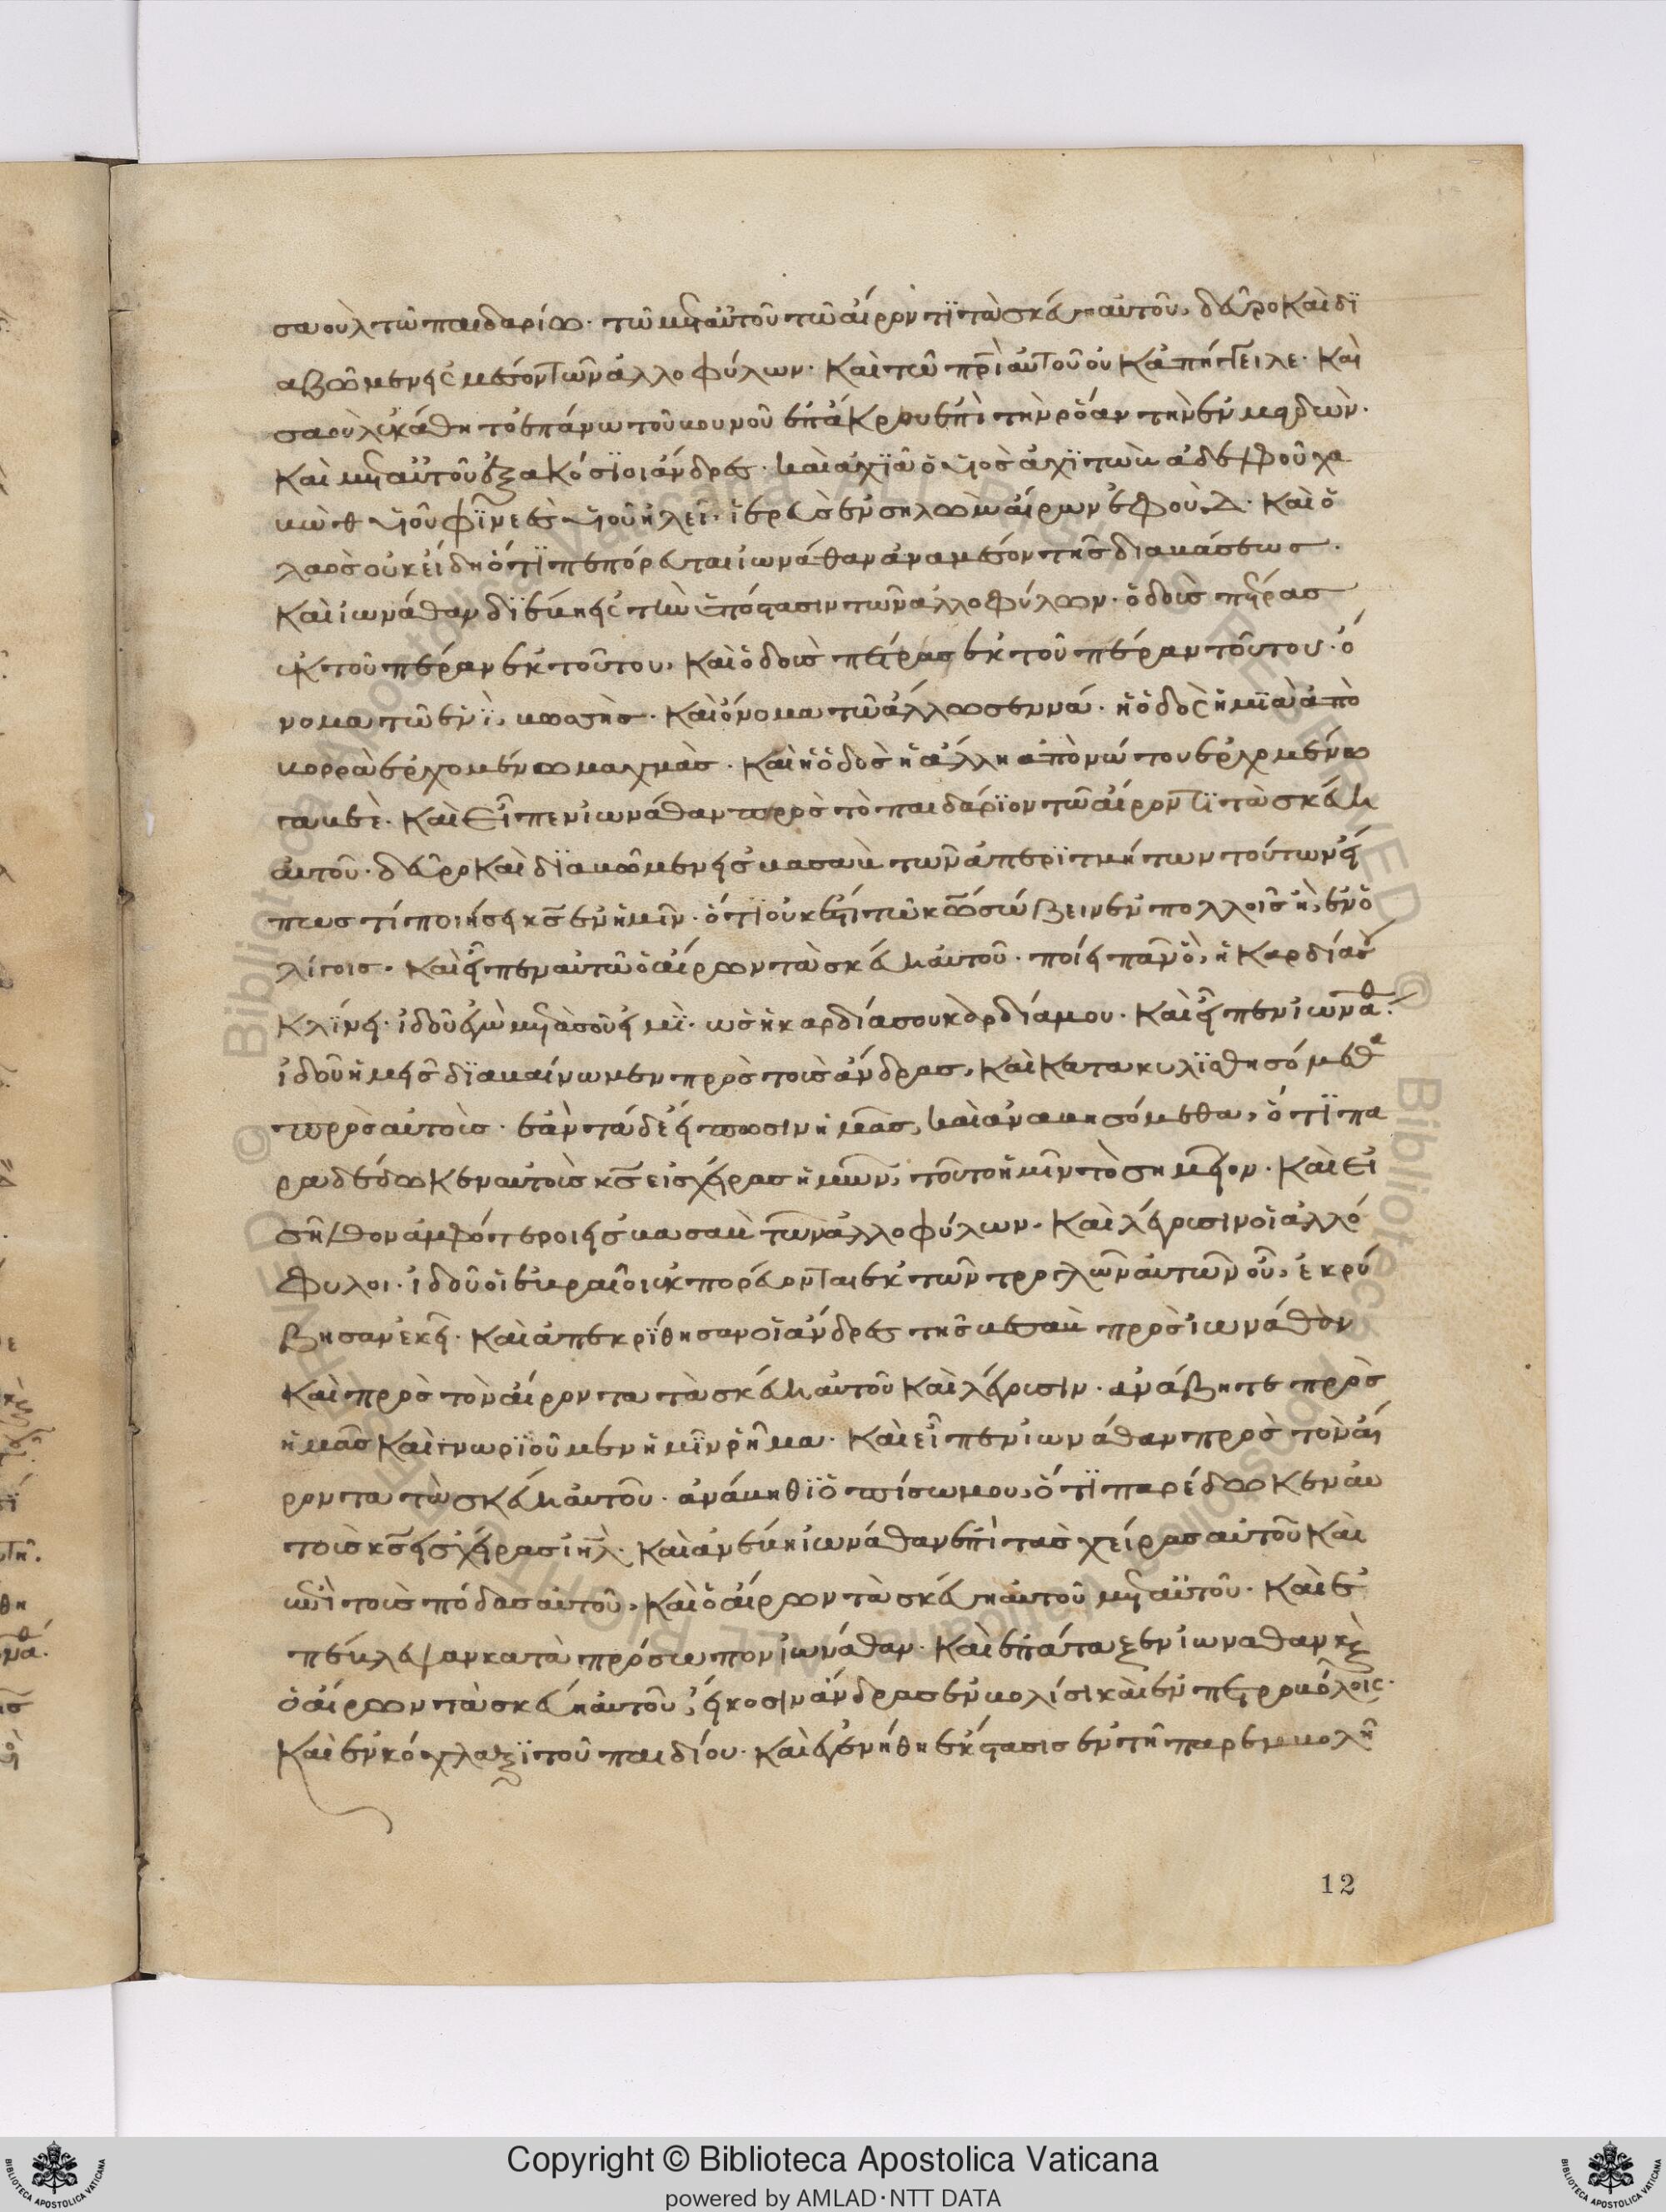 σαουλ τῶ παιδαρίω· τῶ μετ αὐτοῦ τῶ αἴροντϊ τὰ σκεύη αὐτοῦ, δεῦρο καὶ δϊ
αβῶμεν εἰς μέσον τῶν ἀλλοφύλων· καὶ τῶ πρὶ αὐτοῦ οὐκ ἀπήγγειλε· καὶ
σαοὺλ ἐκάθητο ἐπάνω τοῦ βουνοῦ ἐπάκρου ἐπὶ τὴν ῥόαν τὴν ἐν μαγδών·
καὶ μετ αὐτοῦ ἑξακόσϊοι ἄνδρες· καὶ αχϊὰ ὁ υἱὸς ἀχϊτὼβ ἀδελφοῦ χα
βὼθ υἱοῦ φϊνεὲς υἱοῦ ἠλεὶ· ἱερεὺς ἐν σηλὼμ αἴρων ἐφούδ· καὶ ὁ
λαὸς οὐκ εἴδη ὅτϊ πεπόρευται ἰωνάθαν ἀναμέσον τῆς διαβάσεως·
καὶ ἰωνάθαν δϊέβη εἰς τὴν ὑπόστασιν τῶν ἀλλοφύλων· ὁδοὺς πέτρας
ἐκ τοῦ πέραν ἐκ τούτου, καὶ ὁδοὺς πέτρας ἐκ τοῦ πέραν τούτου· ὄ
νομα τῶ ἑνὶ, βωσὴς· καὶ ὄνομα τῶ ἄλλω σενναά· ἡ ὁδὸς ἡ μϊὰ ἀπὸ
βορρὰ ἐρχομένω μαχμὰς· καὶ ἡ ὁδὸς ἡ ἄλλη ἀπὸ νώτου ἐρχομένω
γαβεὲ· καὶ εἶπεν ἰωνάθαν πρὸς τὸ παιδάρϊον τῶ αἴροντϊ τὰ σκεύη
αὐτοῦ· δεῦρο καὶ δϊαβῶμεν εἰς μασαὺ τῶν ἀπερϊτμήτων τούτων εἴ
πως τί ποιήσει κς ἐν ἡμῖν· ὅτϊ οὐκ ἔστι τῶ κω σώζειν ἐν πολλοῖς ἢ, ἐν ὀ
λίγοις· καὶ εἶπεν αὐτῶ ὁ αἴρων τὰ σκεύη αὐτοῦ· ποίει πᾶν ὃ, ἡ καρδία σου
κλϊνει· ἰδοὺ ἐγὼ μετὰ σοῦ εἰμϊ· ὡς ἡ καρδία σου καρδία μου· καὶ εἶπεν ἰωναθ·
ἰδοὺ ἡμεῖς δϊαβαίνωμεν πρὸς τοὺς ἄνδρας, καὶ κατακυλϊσθησόμεθα
πρὸς αὐτοὺς· ἐὰν τάδε εἴπωσιν ἡμᾶς, καὶ ἀναβησόμεθα, ὅτϊ πα
ραδέδωκεν αὐτοὺς κς εἰς χεῖρας ἡμῶν, τοῦτο ἡμῖν τὸ σημεῖον· καὶ εἰ
σῆλθον ἀμφότεροι εἰς μασαὺ τῶν ἀλλοφύλων· καὶ λέγουσιν οἱ ἀλλό
φυλοι· ἰδοὺ οἱ ἑβραῖοι ἐκπορεύονται ἐκ τῶν τρογλῶν αὐτῶν οὗ, ἐκρύ
βησαν ἐκεῖ· καὶ ἀπεκρϊθησαν οἱ ἄνδρες τῆς μεσαὺ πρὸς ἰωνάθαν
καὶ πρὸς τὸν αἴροντα τὰ σκεύη αὐτοῦ καὶ λέγουσιν· ἀνάβητε πρὸς
ἡμᾶς καὶ γνωρϊοῦμεν ἡμῖν ῥῆμα· καὶ εἶπεν ἰωνάθαν πρὸς τὸν αἴ
ροντα τὰ σκεύη αὐτοῦ· ἀνάβηθϊ ὀπίσω μου, ὅτϊ παρέδωκεν αὐ
τοὺς κς εἰς χεῖρας ιηλ· καὶ ἀνέβη ἰωνάθαν ἐπὶ τὰς χεῖρας αὐτοῦ καὶ
ἐπὶ τοὺς πόδας αὐτοῦ, καὶ ὁ αἴρων τὰ σκεύη αὐτοῦ μετ αὐτοῦ· καὶ ἐ
πέβλεψαν κατὰ πρόσωπον ἰωνάθαν· καὶ ἐπάταξεν ἰωναθαν καὶ
ὁ αἴρων τὰ σκεύη αὐτοῦ, εἴκοσιν ἄνδρας ἐν βολίσι καὶ ἐν πετροβόλοις·
καὶ ἐν κόχλαξϊ τοῦ παιδίου· καὶ ἐγενήθη ἔκστασις ἐν τῆ παρεμβολῆ
12
Copyright © Biblioteca Apostolica Vaticana
powered by AMLAD·NTT DATA